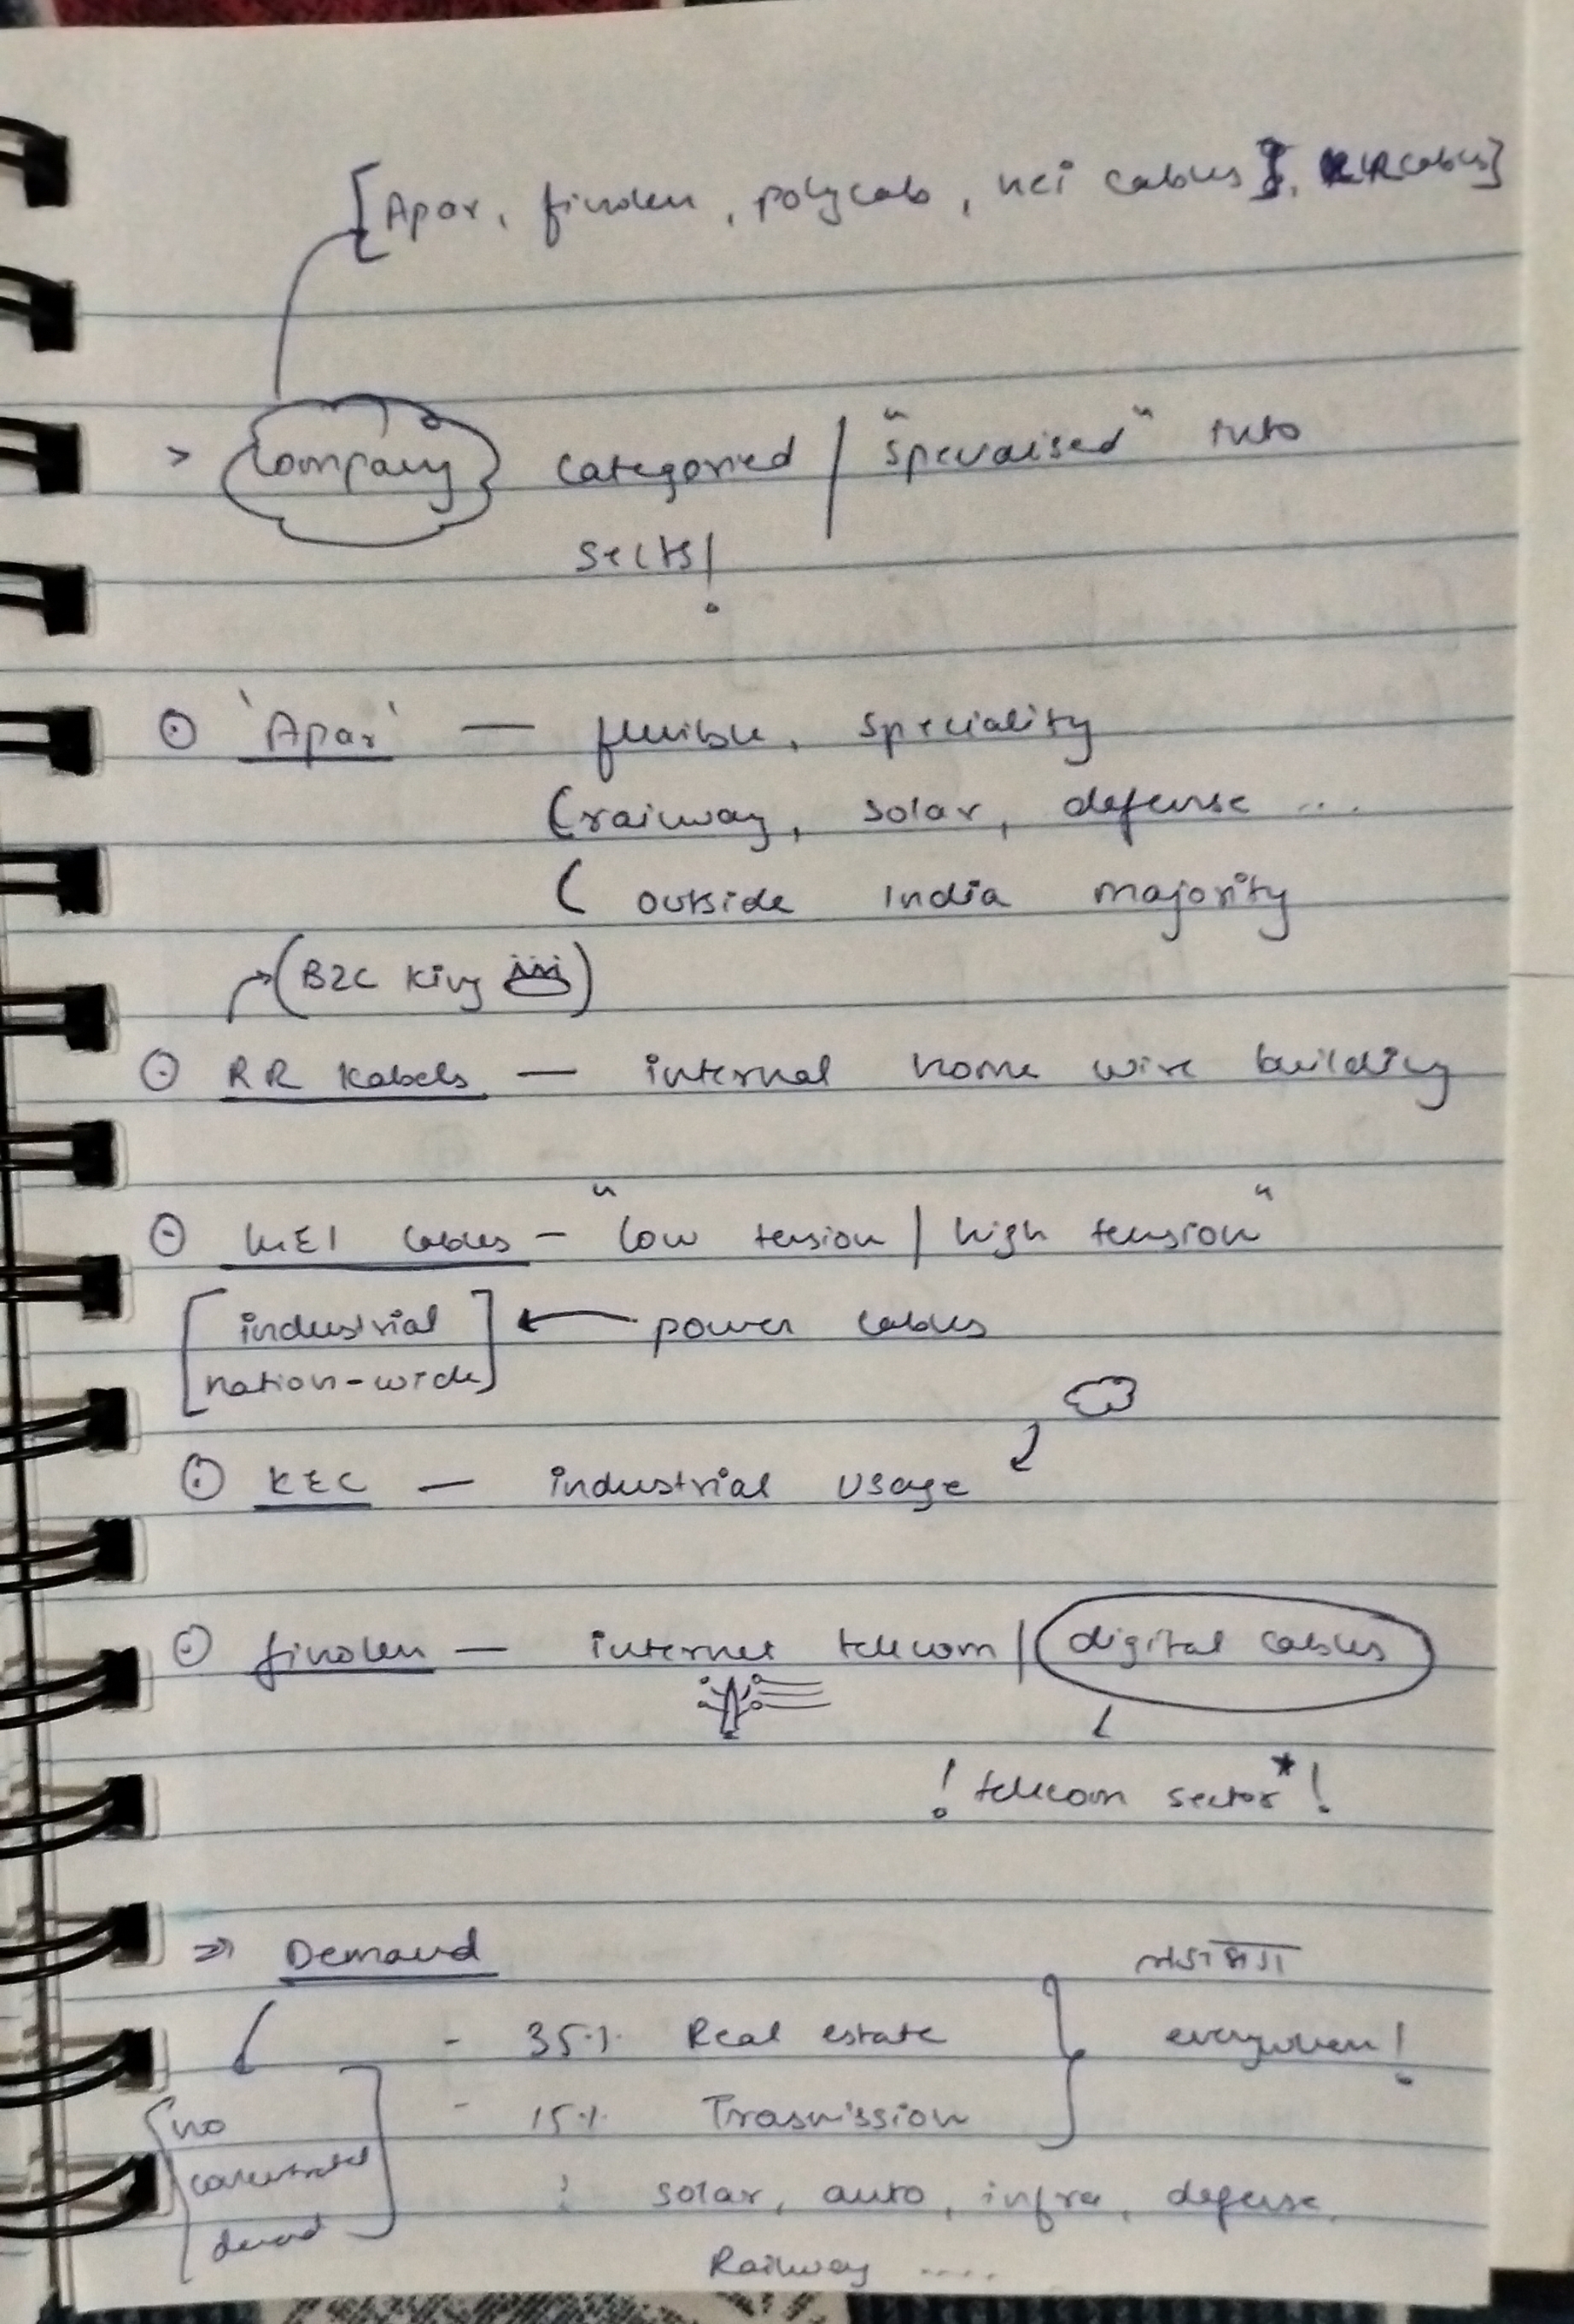 [Apar, finolex, polycab, kei cables], RR cables]
> Company categoried / "specialised" into
sects!
⊙ 'Apar' — flexible, speciality
(railway, solar, defense ....
( outside India majority
→(B2C King)
⊙ RR Kabels — internal home wire building
⊙ KEI cables — "low tension / high tension"
[industrial] ← power cables
[nation-wide]
⊙ KEC — industrial usage
⊙ finolex — internet telecom / digital cables
! telecom sector* !
⇒ Demand
- 35% Real estate } everywhere!
[no - 15% Trasmission
concentrated : solar, auto, infra, defense,
demand]
Railway ....